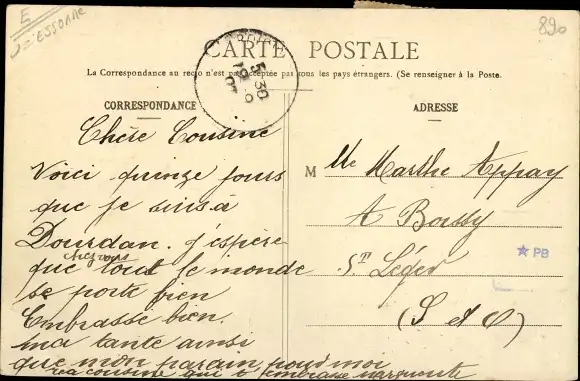 E
ESSONNE
890
CARTE POSTALE
La Correspondance au recto n'est pas acceptée par tous les pays étrangers. (Se renseigner à la Poste.
CORRESPONDANCE
Chère Cousine
Voici quinze jours
que je suis à
Dourdan. j'espère
que chez vous tout le monde
se porte bien
Embrasse bien
ma tante ainsi
que mon parain pour moi
ta cousine qui t'embrasse Marguerite
5 30
ADRESSE
M lle Marthe Appay
A Boissy
St Léger
(S et O)
PB